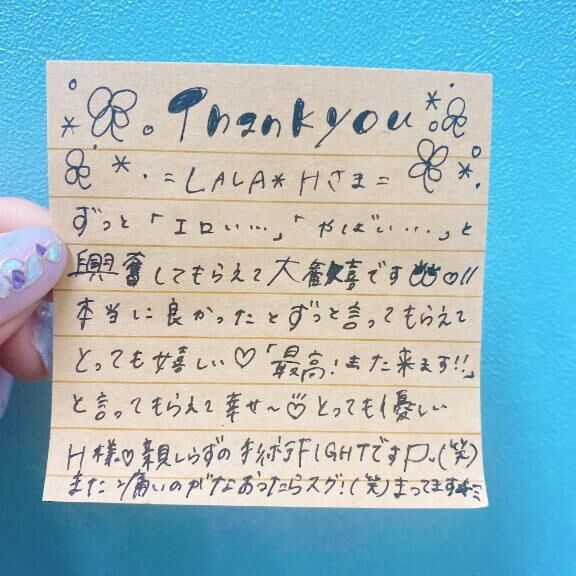 Thank you
= LALA*Hさま =
ずっと「エロい…」「やばい…」と
興奮してもらえて大歓喜です♡!!
本当に良かったとずっと言ってもらえて
とっても嬉しい♡「最高!また来ます!!」
と言ってもらえて幸せ〜♡とっても優しい
H様♡親しらずの手術FIGHTですP。(笑)
また痛いのがなおったらスグ!(笑)まってます